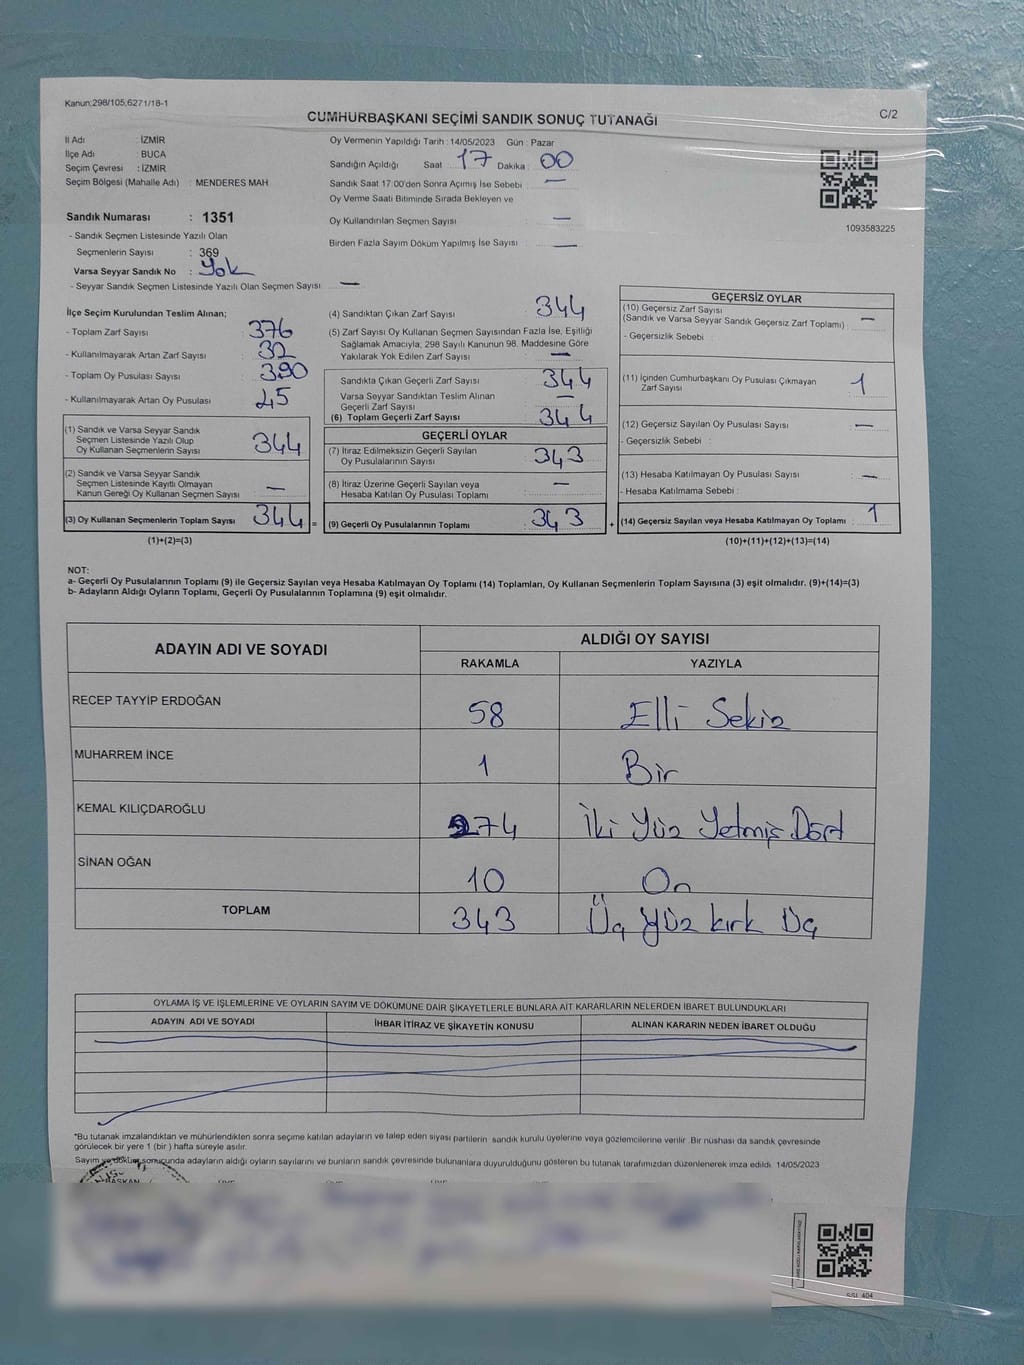 Kanun:298/105,6271/18-1
C/2
CUMHURBAŞKANI SEÇİMİ SANDIK SONUÇ TUTANAĞI
İl Adı : İZMİR
İlçe Adı : BUCA
Seçim Çevresi : İZMİR
Seçim Bölgesi (Mahalle Adı) : MENDERES MAH
Sandık Numarası : 1351
- Sandık Seçmen Listesinde Yazılı Olan
Seçmenlerin Sayısı : 369
Varsa Seyyar Sandık No : Yok
- Seyyar Sandık Seçmen Listesinde Yazılı Olan Seçmen Sayısı : —
Oy Vermenin Yapıldığı Tarih : 14/05/2023 Gün : Pazar
Sandığın Açıldığı Saat : 17 Dakika : 00
Sandık Saat 17:00'den Sonra Açılmış İse Sebebi : —
Oy Verme Saati Bitiminde Sırada Bekleyen ve
Oy Kullandırılan Seçmen Sayısı : —
Birden Fazla Sayım Döküm Yapılmış İse Sayısı : —
1093583225
İlçe Seçim Kurulundan Teslim Alınan;
- Toplam Zarf Sayısı : 376
- Kullanılmayarak Artan Zarf Sayısı : 32
- Toplam Oy Pusulası Sayısı : 390
- Kullanılmayarak Artan Oy Pusulası : 45
(1) Sandık ve Varsa Seyyar Sandık
Seçmen Listesinde Yazılı Olup
Oy Kullanan Seçmenlerin Sayısı 344
(2) Sandık ve Varsa Seyyar Sandık
Seçmen Listesinde Kayıtlı Olmayan
Kanun Gereği Oy Kullanan Seçmen Sayısı —
(3) Oy Kullanan Seçmenlerin Toplam Sayısı 344 =
(1)+(2)=(3)
(4) Sandıktan Çıkan Zarf Sayısı 344
(5) Zarf Sayısı Oy Kullanan Seçmen Sayısından Fazla İse, Eşitliği
Sağlamak Amacıyla; 298 Sayılı Kanunun 98. Maddesine Göre
Yakılarak Yok Edilen Zarf Sayısı —
Sandıkta Çıkan Geçerli Zarf Sayısı 344
Varsa Seyyar Sandıktan Teslim Alınan
Geçerli Zarf Sayısı —
(6) Toplam Geçerli Zarf Sayısı 344
GEÇERLİ OYLAR
(7) İtiraz Edilmeksizin Geçerli Sayılan
Oy Pusulalarının Sayısı 343
(8) İtiraz Üzerine Geçerli Sayılan veya
Hesaba Katılan Oy Pusulası Toplamı —
(9) Geçerli Oy Pusulalarının Toplamı 343 +
GEÇERSİZ OYLAR
(10) Geçersiz Zarf Sayısı
(Sandık ve Varsa Seyyar Sandık Geçersiz Zarf Toplamı) —
- Geçersizlik Sebebi :
(11) İçinden Cumhurbaşkanı Oy Pusulası Çıkmayan
Zarf Sayısı 1
(12) Geçersiz Sayılan Oy Pusulası Sayısı —
- Geçersizlik Sebebi :
(13) Hesaba Katılmayan Oy Pusulası Sayısı —
- Hesaba Katılmama Sebebi :
(14) Geçersiz Sayılan veya Hesaba Katılmayan Oy Toplamı : 1
(10)+(11)+(12)+(13)=(14)
NOT:
a- Geçerli Oy Pusulalarının Toplamı (9) ile Geçersiz Sayılan veya Hesaba Katılmayan Oy Toplamı (14) Toplamları, Oy Kullanan Seçmenlerin Toplam Sayısına (3) eşit olmalıdır. (9)+(14)=(3)
b- Adayların Aldığı Oyların Toplamı, Geçerli Oy Pusulalarının Toplamına (9) eşit olmalıdır.
ADAYIN ADI VE SOYADI
ALDIĞI OY SAYISI
RAKAMLA YAZIYLA
RECEP TAYYİP ERDOĞAN 58 Elli Sekiz
MUHARREM İNCE 1 Bir
KEMAL KILIÇDAROĞLU 274 İki Yüz Yetmiş Dört
SİNAN OĞAN 10 On
TOPLAM 343 Üç Yüz kırk Üç
OYLAMA İŞ VE İŞLEMLERİNE VE OYLARIN SAYIM VE DÖKÜMÜNE DAİR ŞİKAYETLERLE BUNLARA AİT KARARLARIN NELERDEN İBARET BULUNDUKLARI
ADAYIN ADI VE SOYADI İHBAR İTİRAZ VE ŞİKAYETİN KONUSU ALINAN KARARIN NEDEN İBARET OLDUĞU
*Bu tutanak imzalandıktan ve mühürlendikten sonra seçime katılan adayların ve talep eden siyasi partilerin sandık kurulu üyelerine veya gözlemcilerine verilir. Bir nüshası da sandık çevresinde
görülecek bir yere 1 (bir) hafta süreyle asılır.
Sayım ve döküm sonucunda adayların aldığı oyların sayılarını ve bunların sandık çevresinde bulunanlara duyurulduğunu gösteren bu tutanak tarafımızdan düzenlenerek imza edildi. 14/05/2023
BAŞKAN